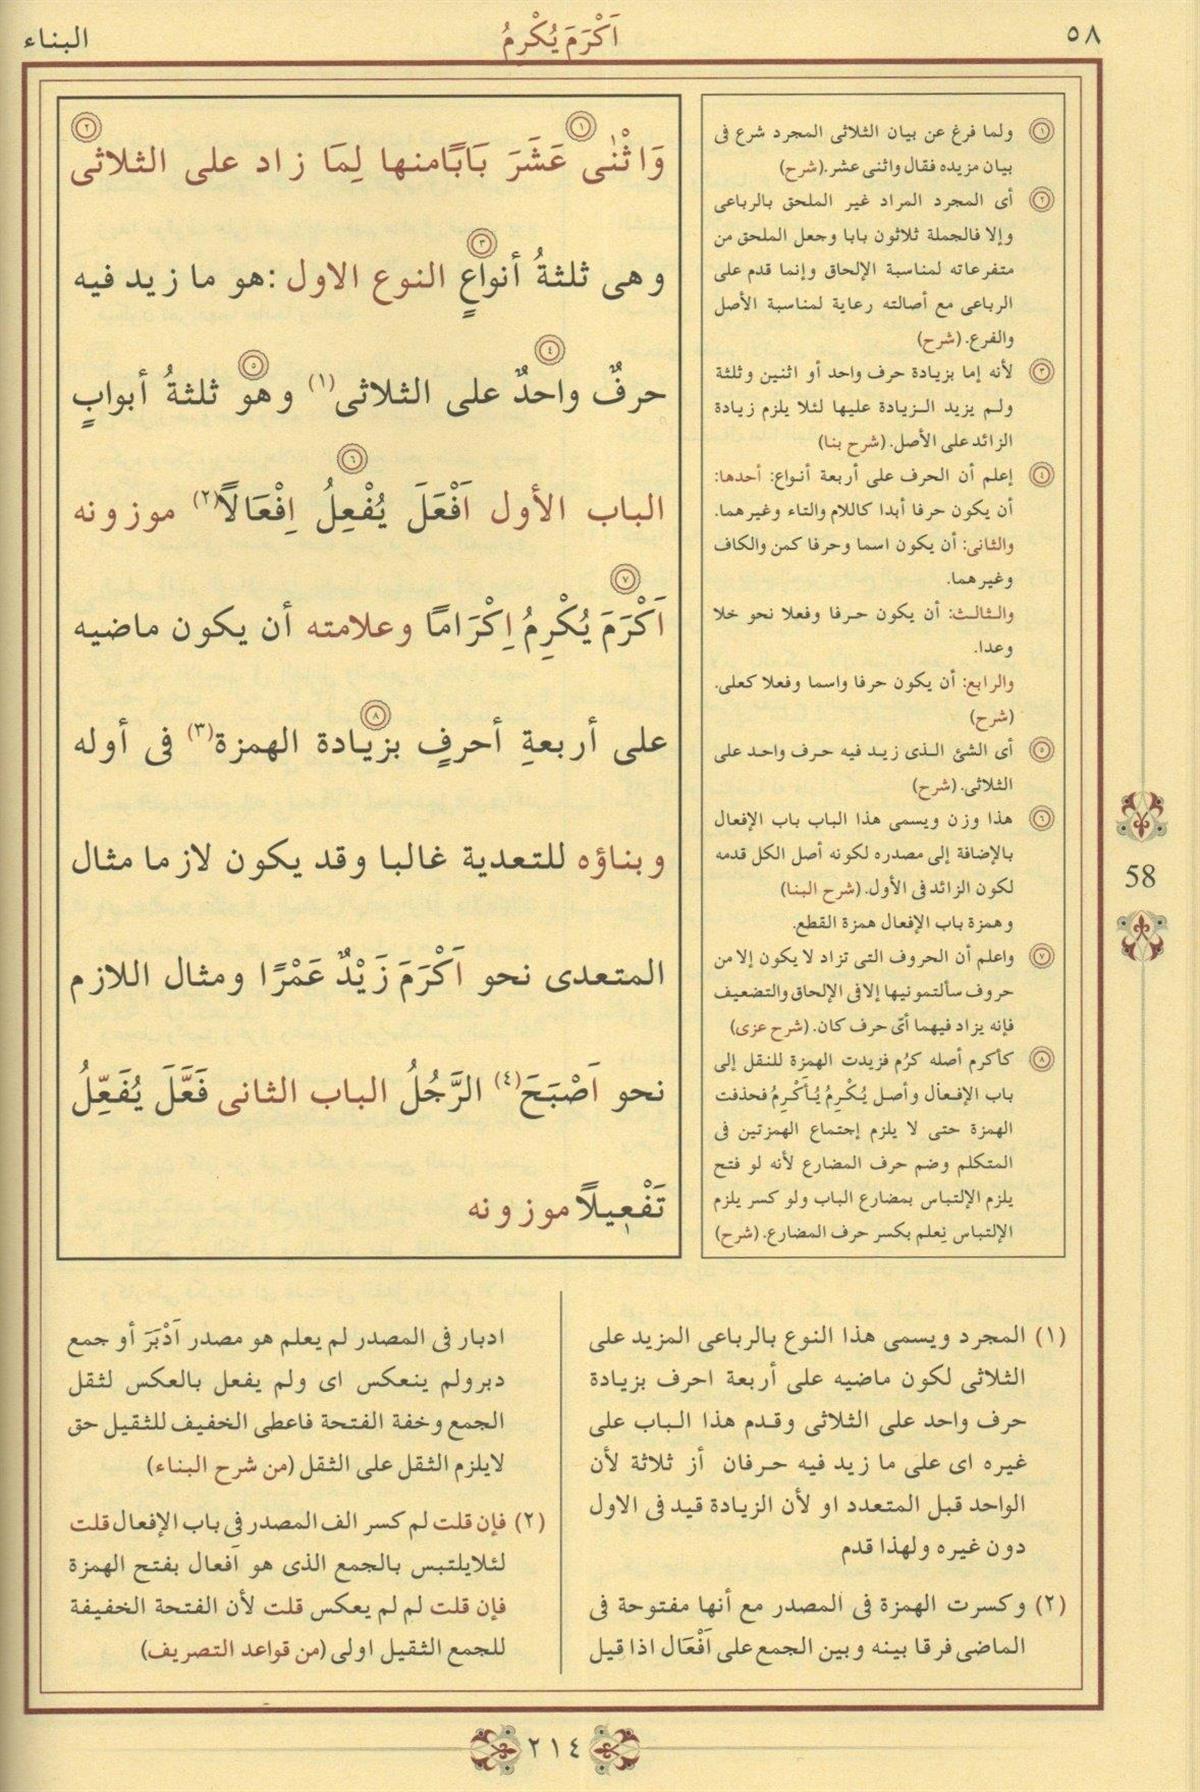 ٥٨
اَكْرَمَ يُكْرِمُ
البناء
وَاثْنٰى عَشَرَ بَابًامنها لِمَا زاد على الثلاثى
وهى ثلثةُ أنواعٍ النوع الاول :هو ما زيد فيه
حرفٌ واحدٌ على الثلاثى(١) وهو ثلثةُ أبوابٍ
الباب الأول اَفْعَلَ يُفْعِلُ اِفْعَالاً(٢) موزونه
اَكْرَمَ يُكْرِمُ اِكْرَامًا وعلامته أن يكون ماضيه
على أربعةِ أحرفٍ بزيادة الهمزة(٣) فى أوله
وبناؤه للتعدية غالبا وقد يكون لازما مثال
المتعدى نحو اَكْرَمَ زَيْدٌ عَمْرًا ومثال اللازم
نحو اَصْبَحَ(٤) الرَّجُلُ الباب الثانى فَعَّلَ يُفَعِّلُ
تَفْعِيلاً موزونه
١ ولما فرغ عن بيان الثلاثى المجرد شرع فى
بيان مزيده فقال واثنى عشر.(شرح)
٢ أى المجرد المراد غير الملحق بالرباعى
وإلا فالجملة ثلاثون بابا وجعل الملحق من
متفرعاته لمناسبة الإلحاق وإنما قدم على
الرباعى مع أصالته رعاية لمناسبة الأصل
والفرع.(شرح)
٣ لأنه إما بزيادة حرف واحد أو اثنين وثلثة
ولم يزيد الزيادة عليها لئلا يلزم زيادة
الزائد على الأصل.(شرح بنا)
٤ إعلم أن الحرف على أربعة أنواع: أحدها:
أن يكون حرفا أبدا كاللام والتاء وغيرهما.
والثانى: أن يكون اسما وحرفا كمن والكاف
وغيرهما.
والثالث: أن يكون حرفا وفعلا نحو خلا
وعدا.
والرابع: أن يكون حرفا واسما وفعلا كعلى.
(شرح)
٥ أى الشئ الذى زيد فيه حرف واحد على
الثلاثى.(شرح)
٦ هذا وزن ويسمى هذا الباب باب الإفعال
بالإضافة إلى مصدره لكونه أصل الكل قدمه
لكون الزائد فى الأول.(شرح البنا)
وهمزة باب الإفعال همزة القطع.
٧ واعلم أن الحروف التى تزاد لا يكون إلا من
حروف سألتمونيها إلا فى الإلحاق والتضعيف
فإنه يزاد فيهما أىّ حرف كان.(شرح عزى)
٨ كأكرم أصله كرُم فزيدت الهمزة للنقل إلى
باب الإفعال وأصل يُكْرِمُ يُأَكْرِمُ فحذفت
الهمزة حتى لا يلزم إجتماع الهمزتين فى
المتكلم وضم حرف المضارع لأنه لو فتح
يلزم الإلتباس بمضارع الباب ولو كسر يلزم
الإلتباس نِعلم بكسر حرف المضارع.(شرح)
58
(١) المجرد ويسمى هذا النوع بالرباعى المزيد على
الثلاثى لكون ماضيه على أربعة احرف بزيادة
حرف واحد على الثلاثى وقدم هذا الباب على
غيره اى على ما زيد فيه حرفان أز ثلاثة لأن
الواحد قبل المتعدد او لأن الزيادة قيد فى الاول
دون غيره ولهذا قدم
(٢) وكسرت الهمزة فى المصدر مع أنها مفتوحة فى
الماضى فرقا بينه وبين الجمع على اَفْعَال اذا قيل
ادبار فى المصدر لم يعلم هو مصدر اَدْبَرَ أو جمع
دبرولم ينعكس اى ولم يفعل بالعكس لثقل
الجمع وخفة الفتحة فاعطى الخفيف للثقيل حق
لايلزم الثقل على الثقل (من شرح البناء)
(٢) فإن قلت لم كسر الف المصدر فى باب الإفعال قلت
لئلايلتبس بالجمع الذى هو اَفعال بفتح الهمزة
فإن قلت لم لم يعكس قلت لأن الفتحة الخفيفة
للجمع الثقيل اولى (من قواعد التصريف)
٢١٤